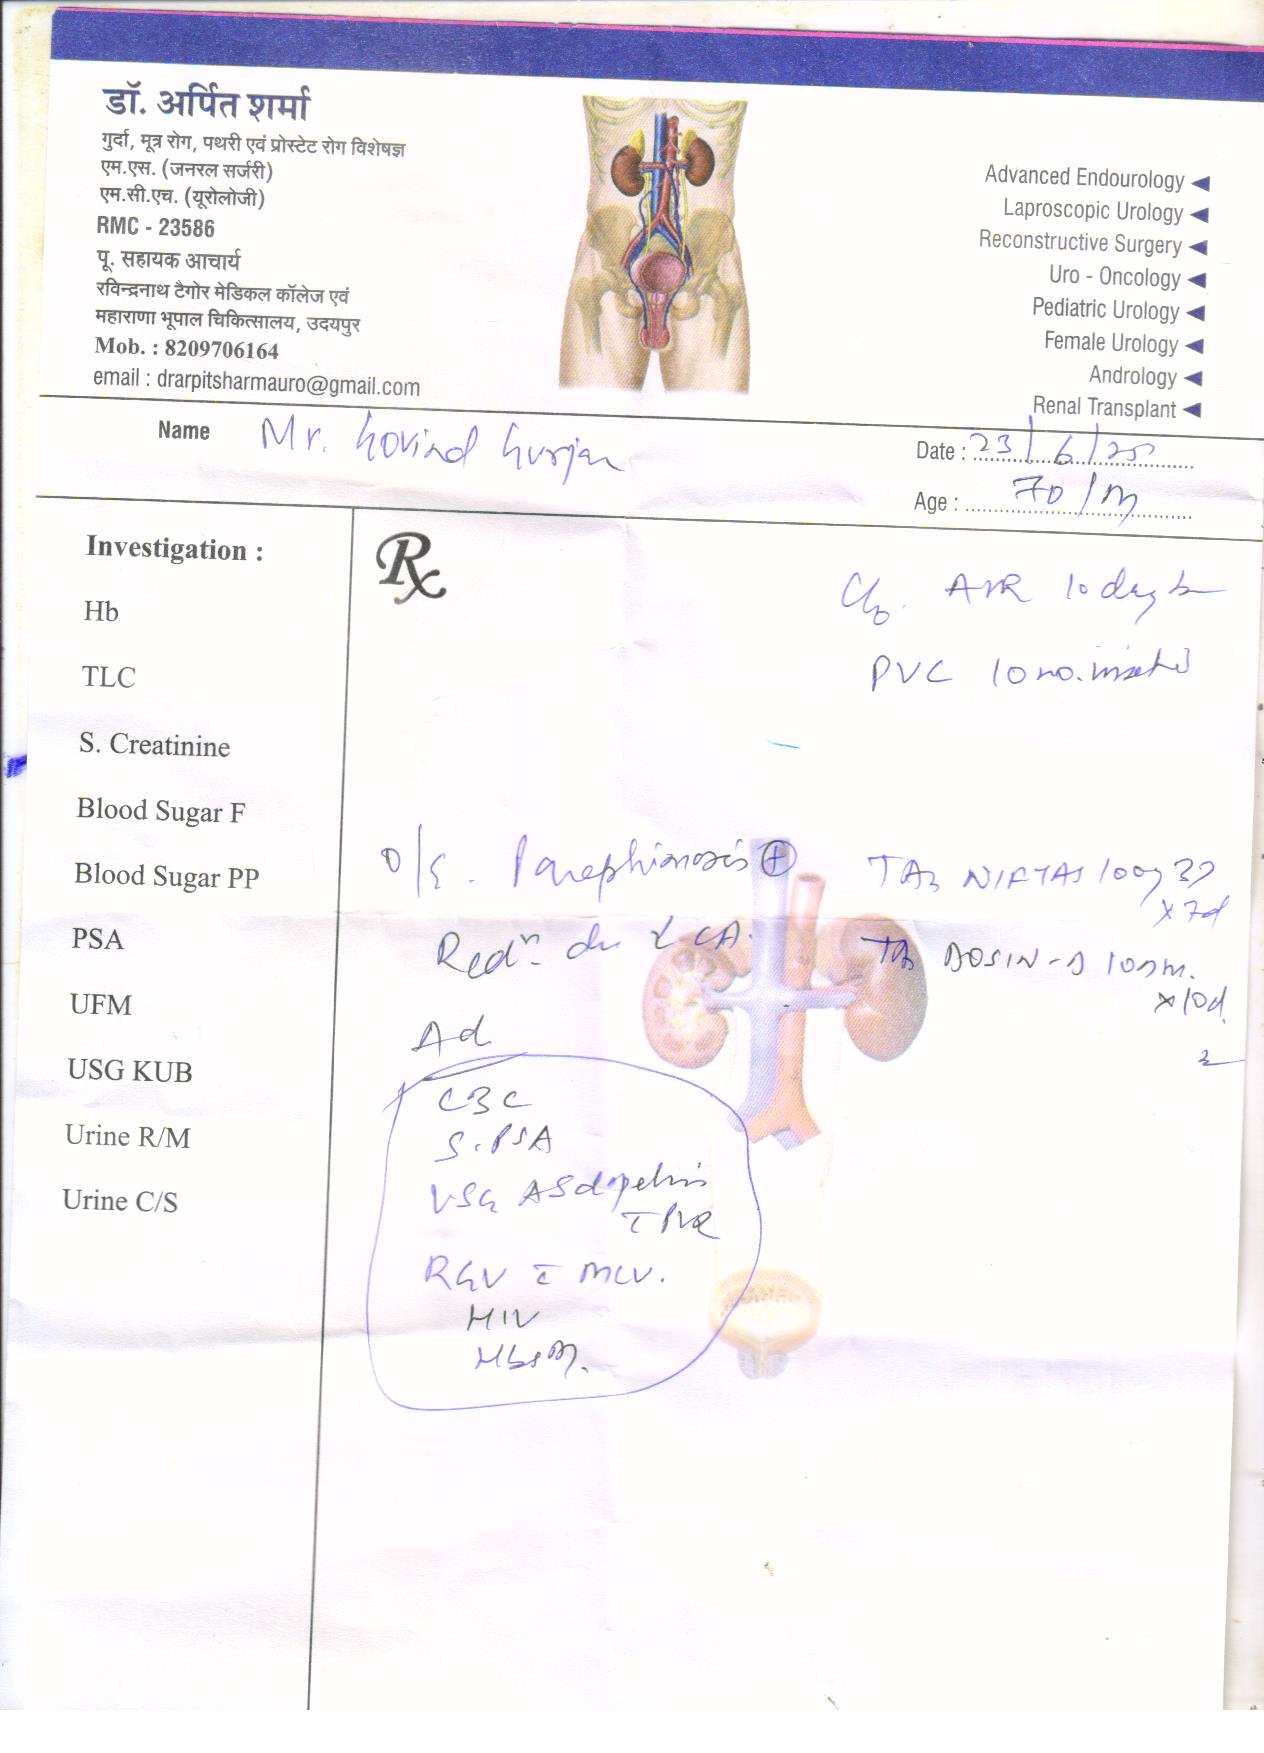 डॉ. अर्पित शर्मा
गुर्दा, मूत्र रोग, पथरी एवं प्रोस्टेट रोग विशेषज्ञ
एम.एस. (जनरल सर्जरी)
एम.सी.एच. (यूरोलोजी)
RMC - 23586
पू. सहायक आचार्य
रविन्द्रनाथ टैगोर मेडिकल कॉलेज एवं
महाराणा भूपाल चिकित्सालय, उदयपुर
Mob. : 8209706164
email : drarpitsharmauro@gmail.com
Advanced Endourology
Laproscopic Urology
Reconstructive Surgery
Uro - Oncology
Pediatric Urology
Female Urology
Andrology
Renal Transplant
Name Mr. Govind Gurjar
Date : 23/6/25
Age : 70/M
Investigation :
Hb
TLC
S. Creatinine
Blood Sugar F
Blood Sugar PP
PSA
UFM
USG KUB
Urine R/M
Urine C/S
Rx
C/o. AUR 10 days
PVC 10 no. inserted
O/E. Paraphimosis +
Redn. LA.
Ad
CBC
S. PSA
USG Abdopelvis
c PVR
RGU c MCU.
HIV
HbsAg.
TAB NIFTAS 100
x 7d
TAB DOSIN-D
x 10d.